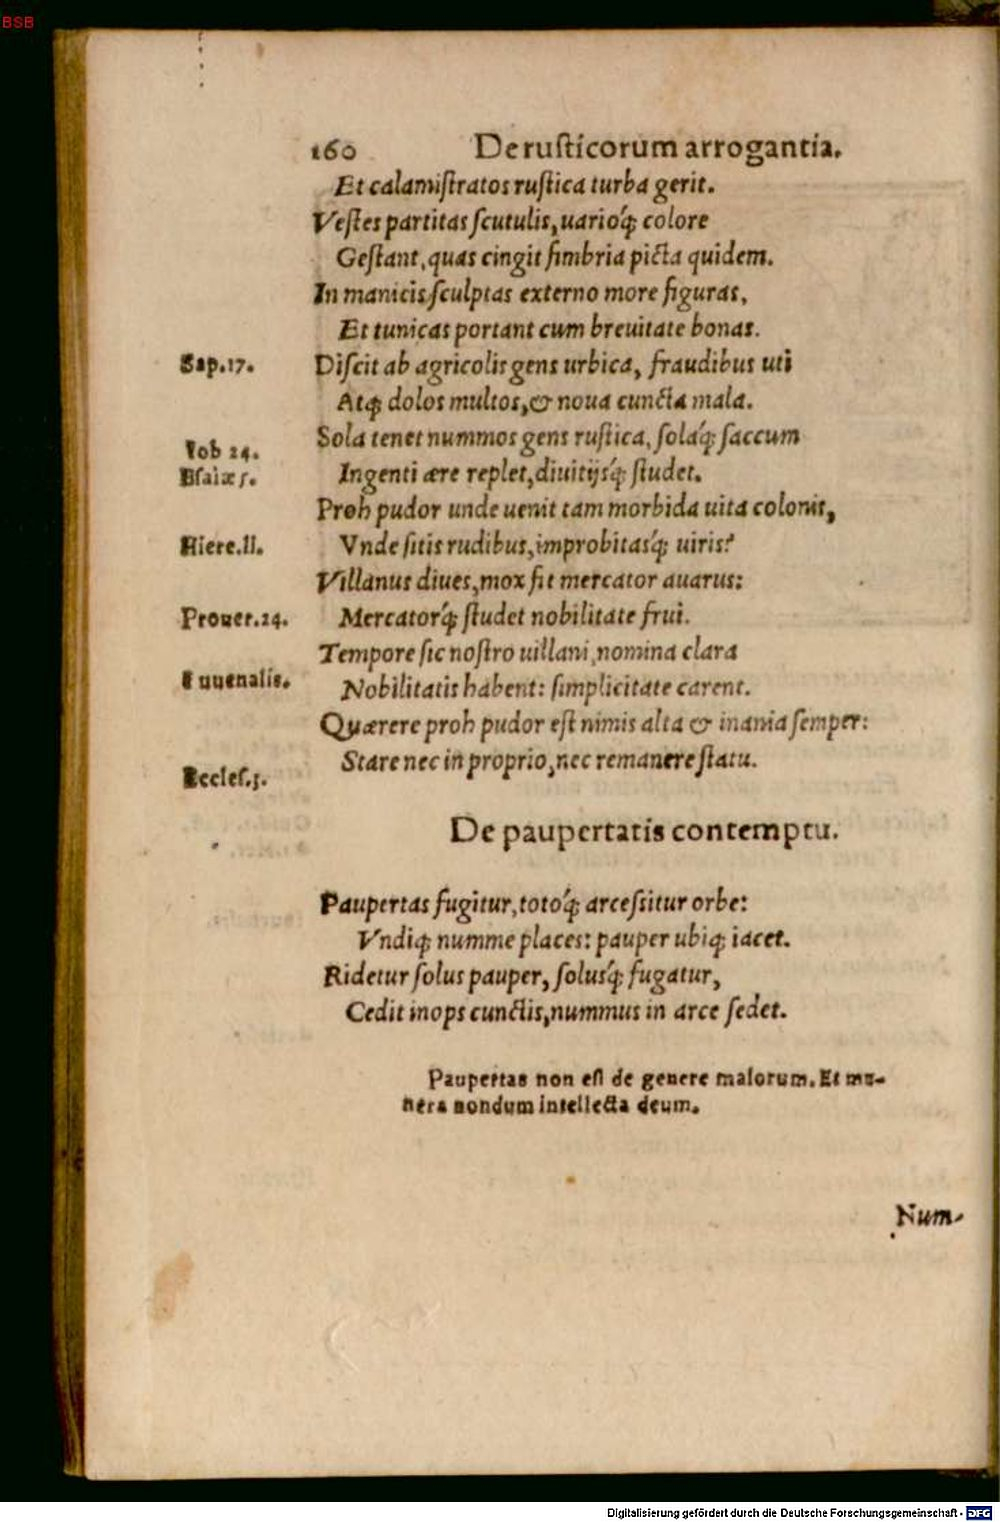 BSB
160 De rusticorum arrogantia.
Et calamistratos rustica turba gerit.
Vestes partitas scutulis, uarioq́; colore
Gestant, quas cingit fimbria picta quidem.
In manicis sculptas externo more figuras,
Et tunicas portant cum breuitate bonas.
Sap.17. Discit ab agricolis gens urbica, fraudibus uti
Atq; dolos multos, & noua cuncta mala.
Sola tenet nummos gens rustica, solaq́; saccum
Iob 24.
Esaiæ 5. Ingenti ære replet, diuitijsq́; studet.
Proh pudor unde uenit tam morbida uita colonis,
Hiere.II. Vnde sitis rudibus, improbitasq́; uiris?
Villanus diues, mox fit mercator auarus:
Prouer.24. Mercatorq́; studet nobilitate frui.
Tempore sic nostro uillani, nomina clara
Iuuenalis. Nobilitatis habent: simplicitate carent.
Quærere proh pudor est nimis alta & inania semper:
Stare nec in proprio, nec remanere statu.
Eccles.3.
De paupertatis contemptu.
Paupertas fugitur, totoq́; arcessitur orbe:
Vndiq; numme places: pauper ubiq; iacet.
Ridetur solus pauper, solusq́; fugatur,
Cedit inops cunctis, nummus in arce sedet.
Paupertas non est de genere malorum. Et mu-
nera nondum intellecta deum.
Num-
Digitalisierung gefördert durch die Deutsche Forschungsgemeinschaft - DFG